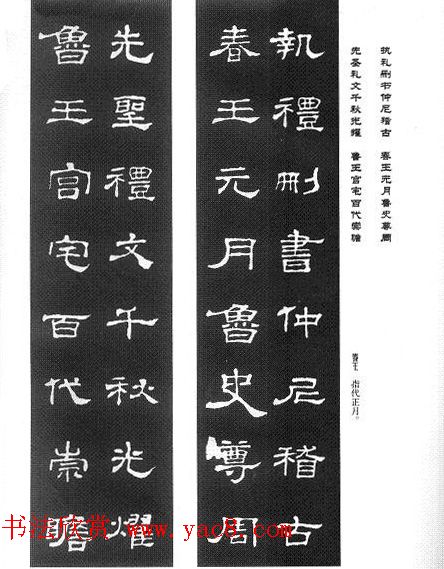 执礼删书仲尼稽古 春王元月鲁史尊周
先圣礼文千秋光耀 鲁王宫宅百代崇瞻
春王 指代正月。
執禮刪書仲尼稽古
春王元月魯史尊周
先聖禮文千秋光耀
魯王宮宅百代崇瞻
书法欣赏 www.yac8.com